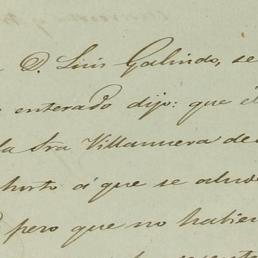 D. Luis Galindo, se
enterado dijo: que él
la Sra Villanueva de
hurto á que se alud
pero que no habien